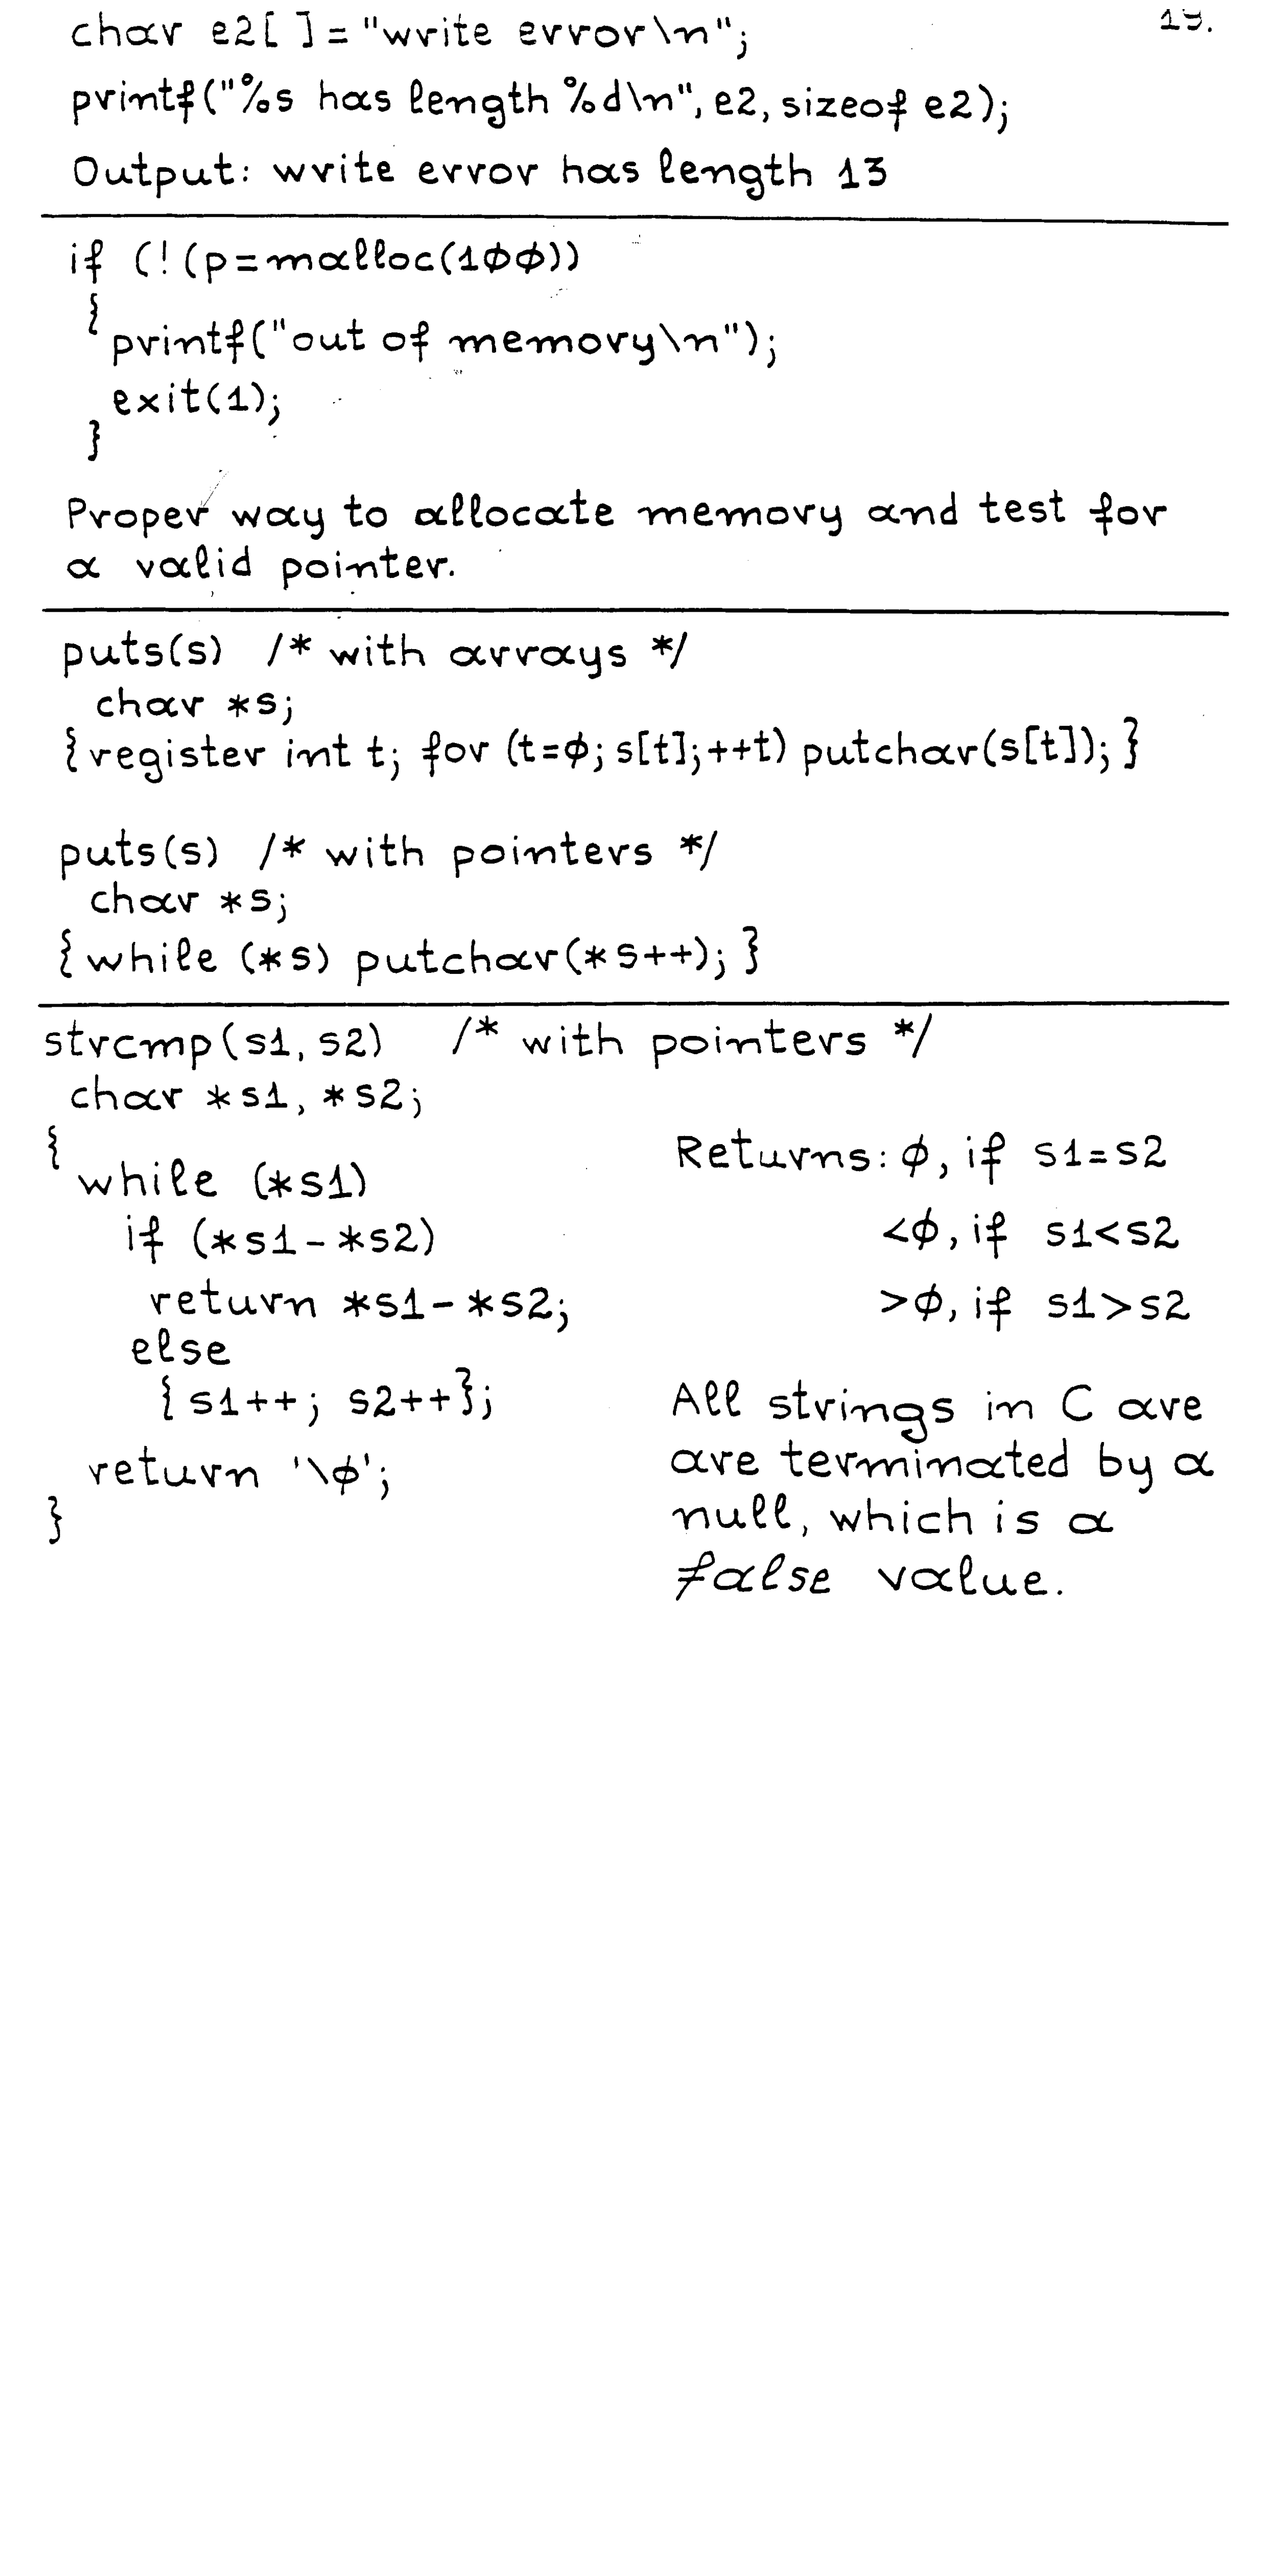 19.
char e2[ ]="write error\n";
printf("%s has length %d\n", e2, sizeof e2);
Output: write error has length 13
if (!(p=malloc(1φφ))
{
printf("out of memory\n");
exit(1);
}
Proper way to allocate memory and test for
a valid pointer.
puts(s) /* with arrays */
char *s;
{register int t; for (t=φ; s[t];++t) putchar(s[t]); }
puts(s) /* with pointers */
char *s;
{while (*s) putchar(*s++); }
strcmp(s1, s2) /* with pointers */
char *s1, *s2;
{
while (*s1)
if (*s1-*s2)
return *s1-*s2;
else
{s1++; s2++};
return '\φ';
}
Returns: φ, if s1=s2
<φ, if s1<s2
>φ, if s1>s2
All strings in C are
are terminated by a
null, which is a
false value.